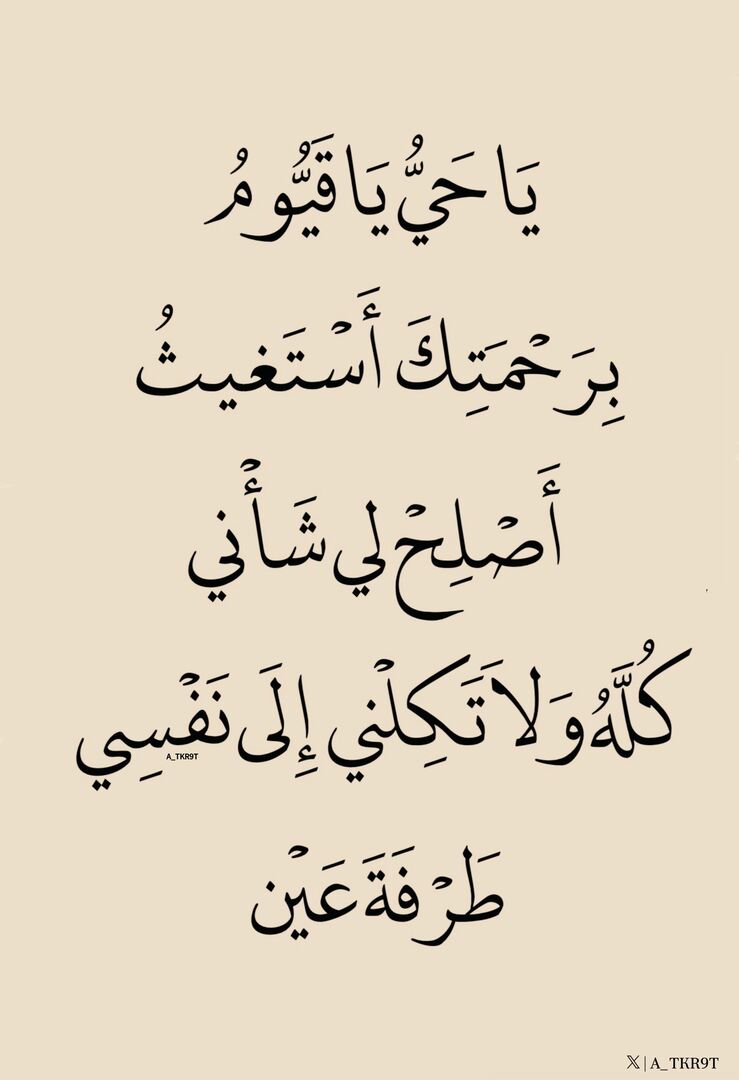 يَا حَيُّ يَا قَيُّومُ
بِرَحْمَتِكَ أَسْتَغيثُ
أَصْلِحْ لي شَأْني
كُلَّهُ وَلاَ تَكِلْني إِلَى نَفْسِي
A_TKR9T
طَرْفَةَ عَيْن
𝕏 | A_TKR9T